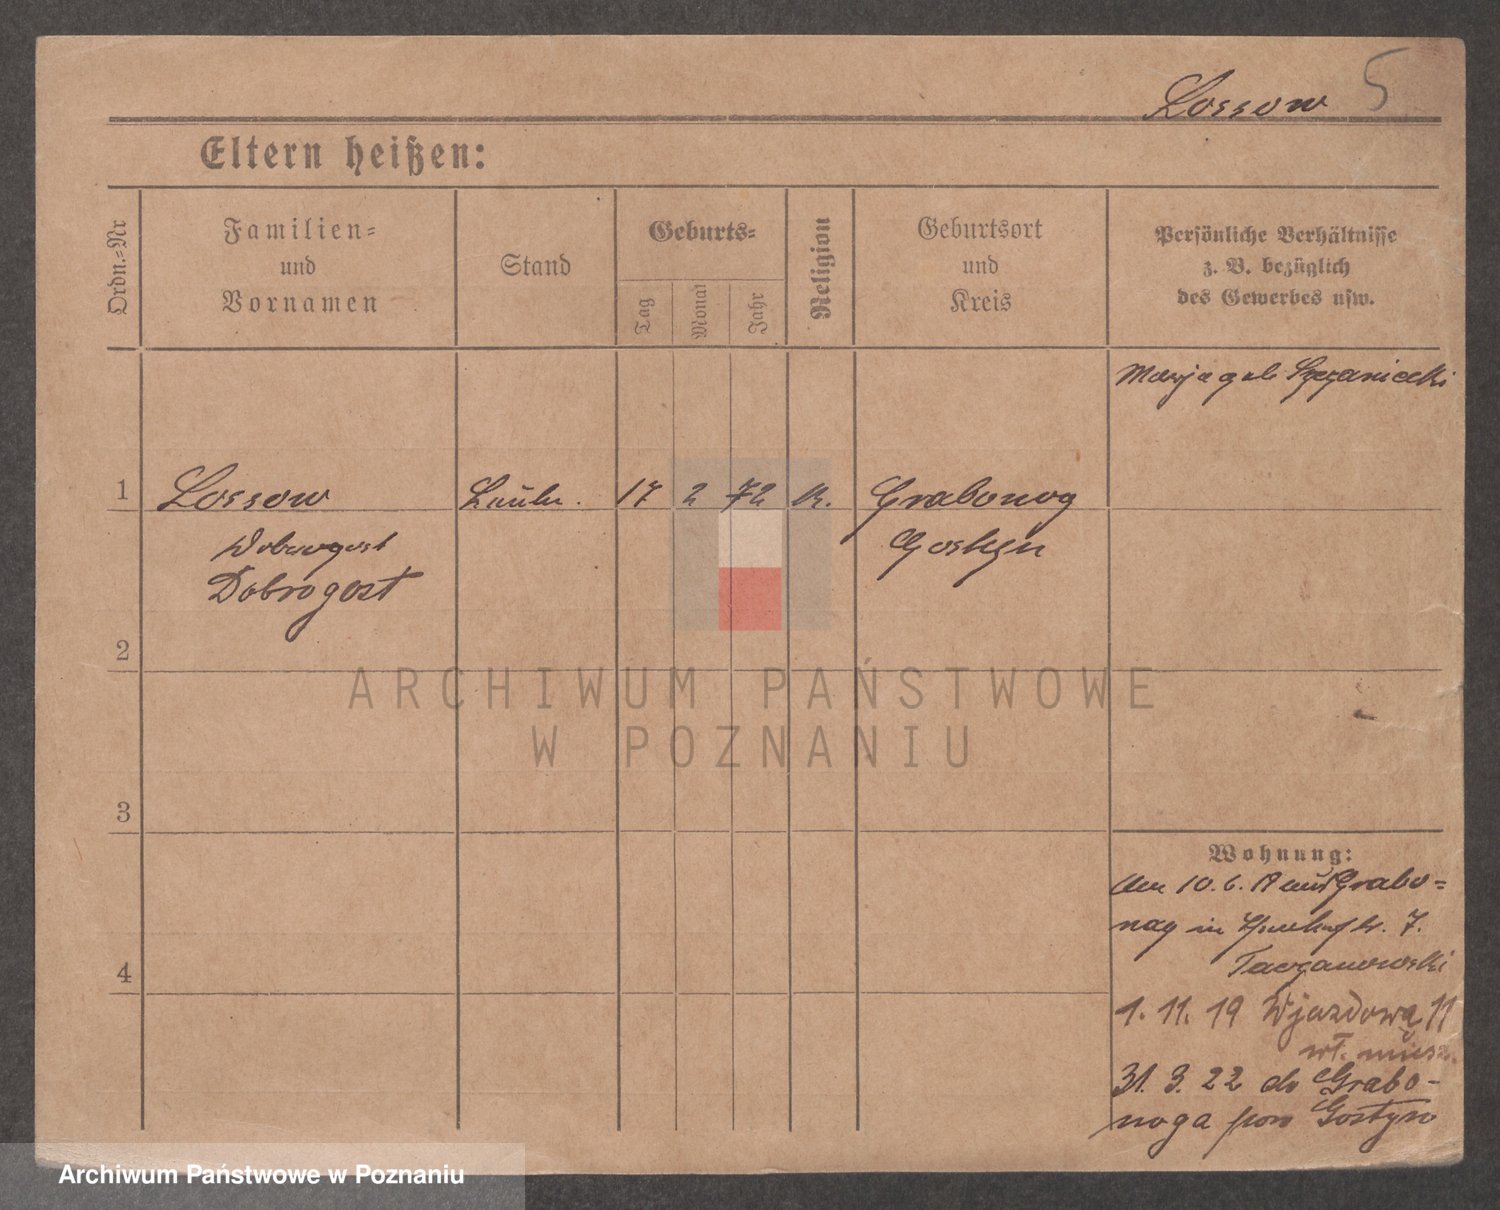 Lossow 5
Eltern heißen:
Ordn.=Nr
Familien=
und
Vornamen
Stand
Geburts=
Tag
Monat
Jahr
Religion
Geburtsort
und
Kreis
Persönliche Verhältnisse
z. B. bezüglich
des Gewerbes usw.
1 Lossow 17 2 72 K. Grabonog
Dobrogost Gostyn
Dobrogost
2
ARCHIWUM PAŃSTWOWE
W POZNANIU
3
Wohnung:
10. 6. 19 aus Grabo=
nog in 7.
4
Tarzanowski
1. 11. 19 Wjazdowa 11
wł. miesz.
31. 3. 22 do Grabo-
noga pow Gostyn
Archiwum Państwowe w Poznaniu